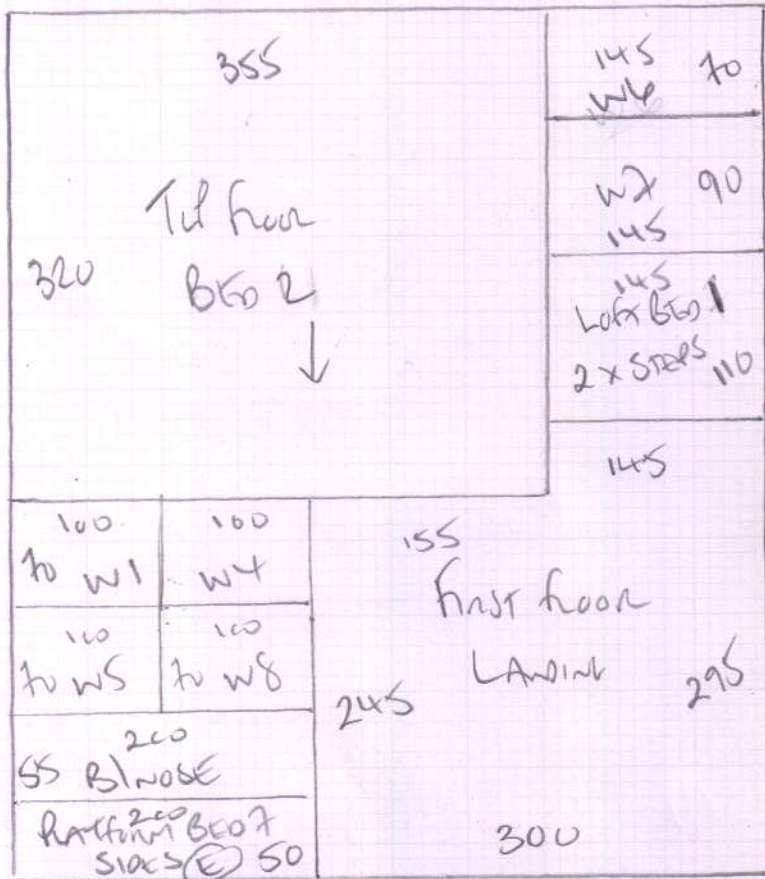 355
320
floor
BED 2
145
W6 70
W7 90
145
145
LOFT BED 1
2 X STEPS 110
145
100
70 W1
100
W4
100
70 W5
100
70 W8
200
55 B/NOSE
200
PLATFORM BED 7
SIDES E 50
155
FIRST FLOOR
LANDING
245
295
300